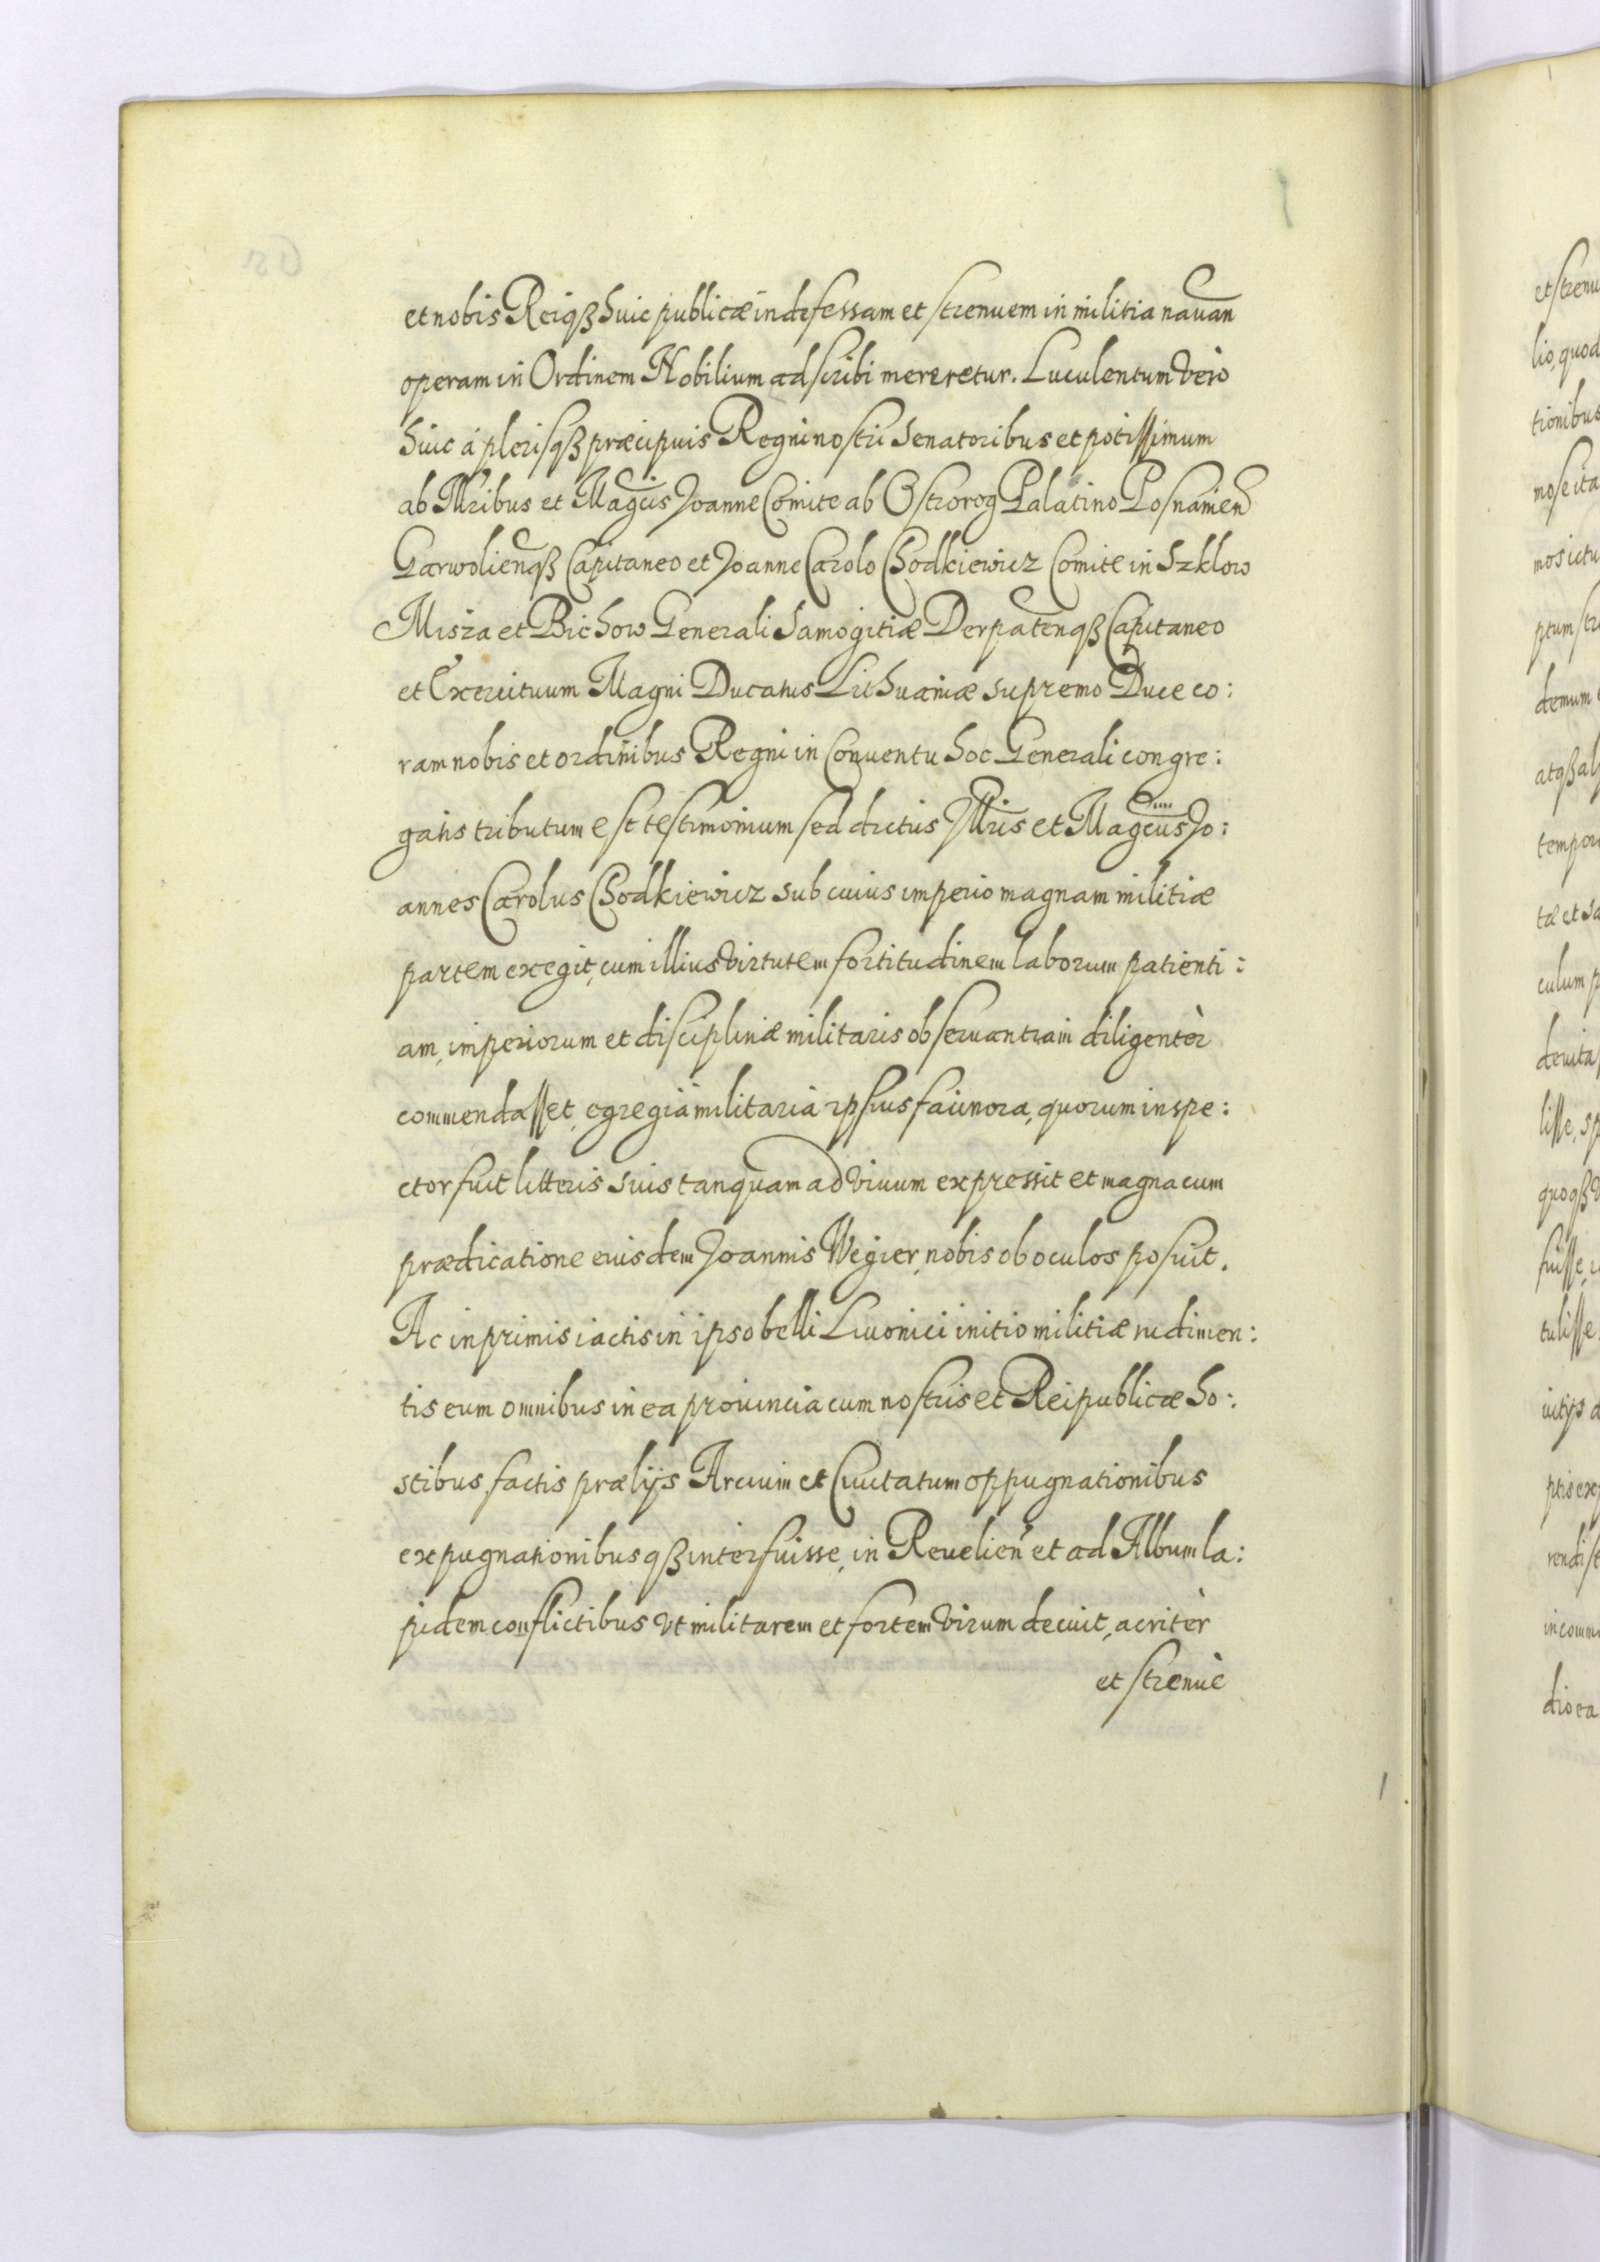 et nobis Reiqß huic publicæ indefessam et strenuem in militia navan
operam in Ordinem Nobilium adscribi mereretur. Luculentum verò
huic à plerisqß præcipuis Regni nostri Senatoribus et potissimum
ab Illribus et Magcis Joanne Comite ab Ostrorog Palatino Posnanien
Garwolienqß Capitaneo et Joanne Carolo Chodkiewicz Comite in Szklow
Misza et Bichow Generali Samogitiæ Derpatenqß Capitaneo
et Exercituum Magni Ducatus Lithuaniæ supremo Duce co:
ram nobis et ordinibus Regni in Conventu hoc Generali congre:
gatis tributum est testimonium sed dictus Illris et Magcus Jo:
annes Carolus Chodkiewicz sub cuius imperio magnam militiæ
partem exegit, cum illius virtutem fortitudinem laborum patienti:
am, imperiorum et disciplinæ militaris observantiam diligentèr
commendasset, egregia militaria ipsius facinora, quorum inspe:
ctor fuit litteris suis tanquam ad vivum expressit et magna cum
prædicatione eiusdem Joannis Wegier, nobis ob oculos posuit.
Ac inprimis iactis in ipso belli Livonici initio militiæ rudimen:
tis eum omnibus in ea provincia cum nostris et Reipublicæ ho:
stibus factis prælijs Arcium et Civitatum oppugnationibus
expugnationibusqß interfuisse, in Revelien et ad Album la:
pidem conflictibus vt militarem et fortem virum decuit, acritèr
et strenuè